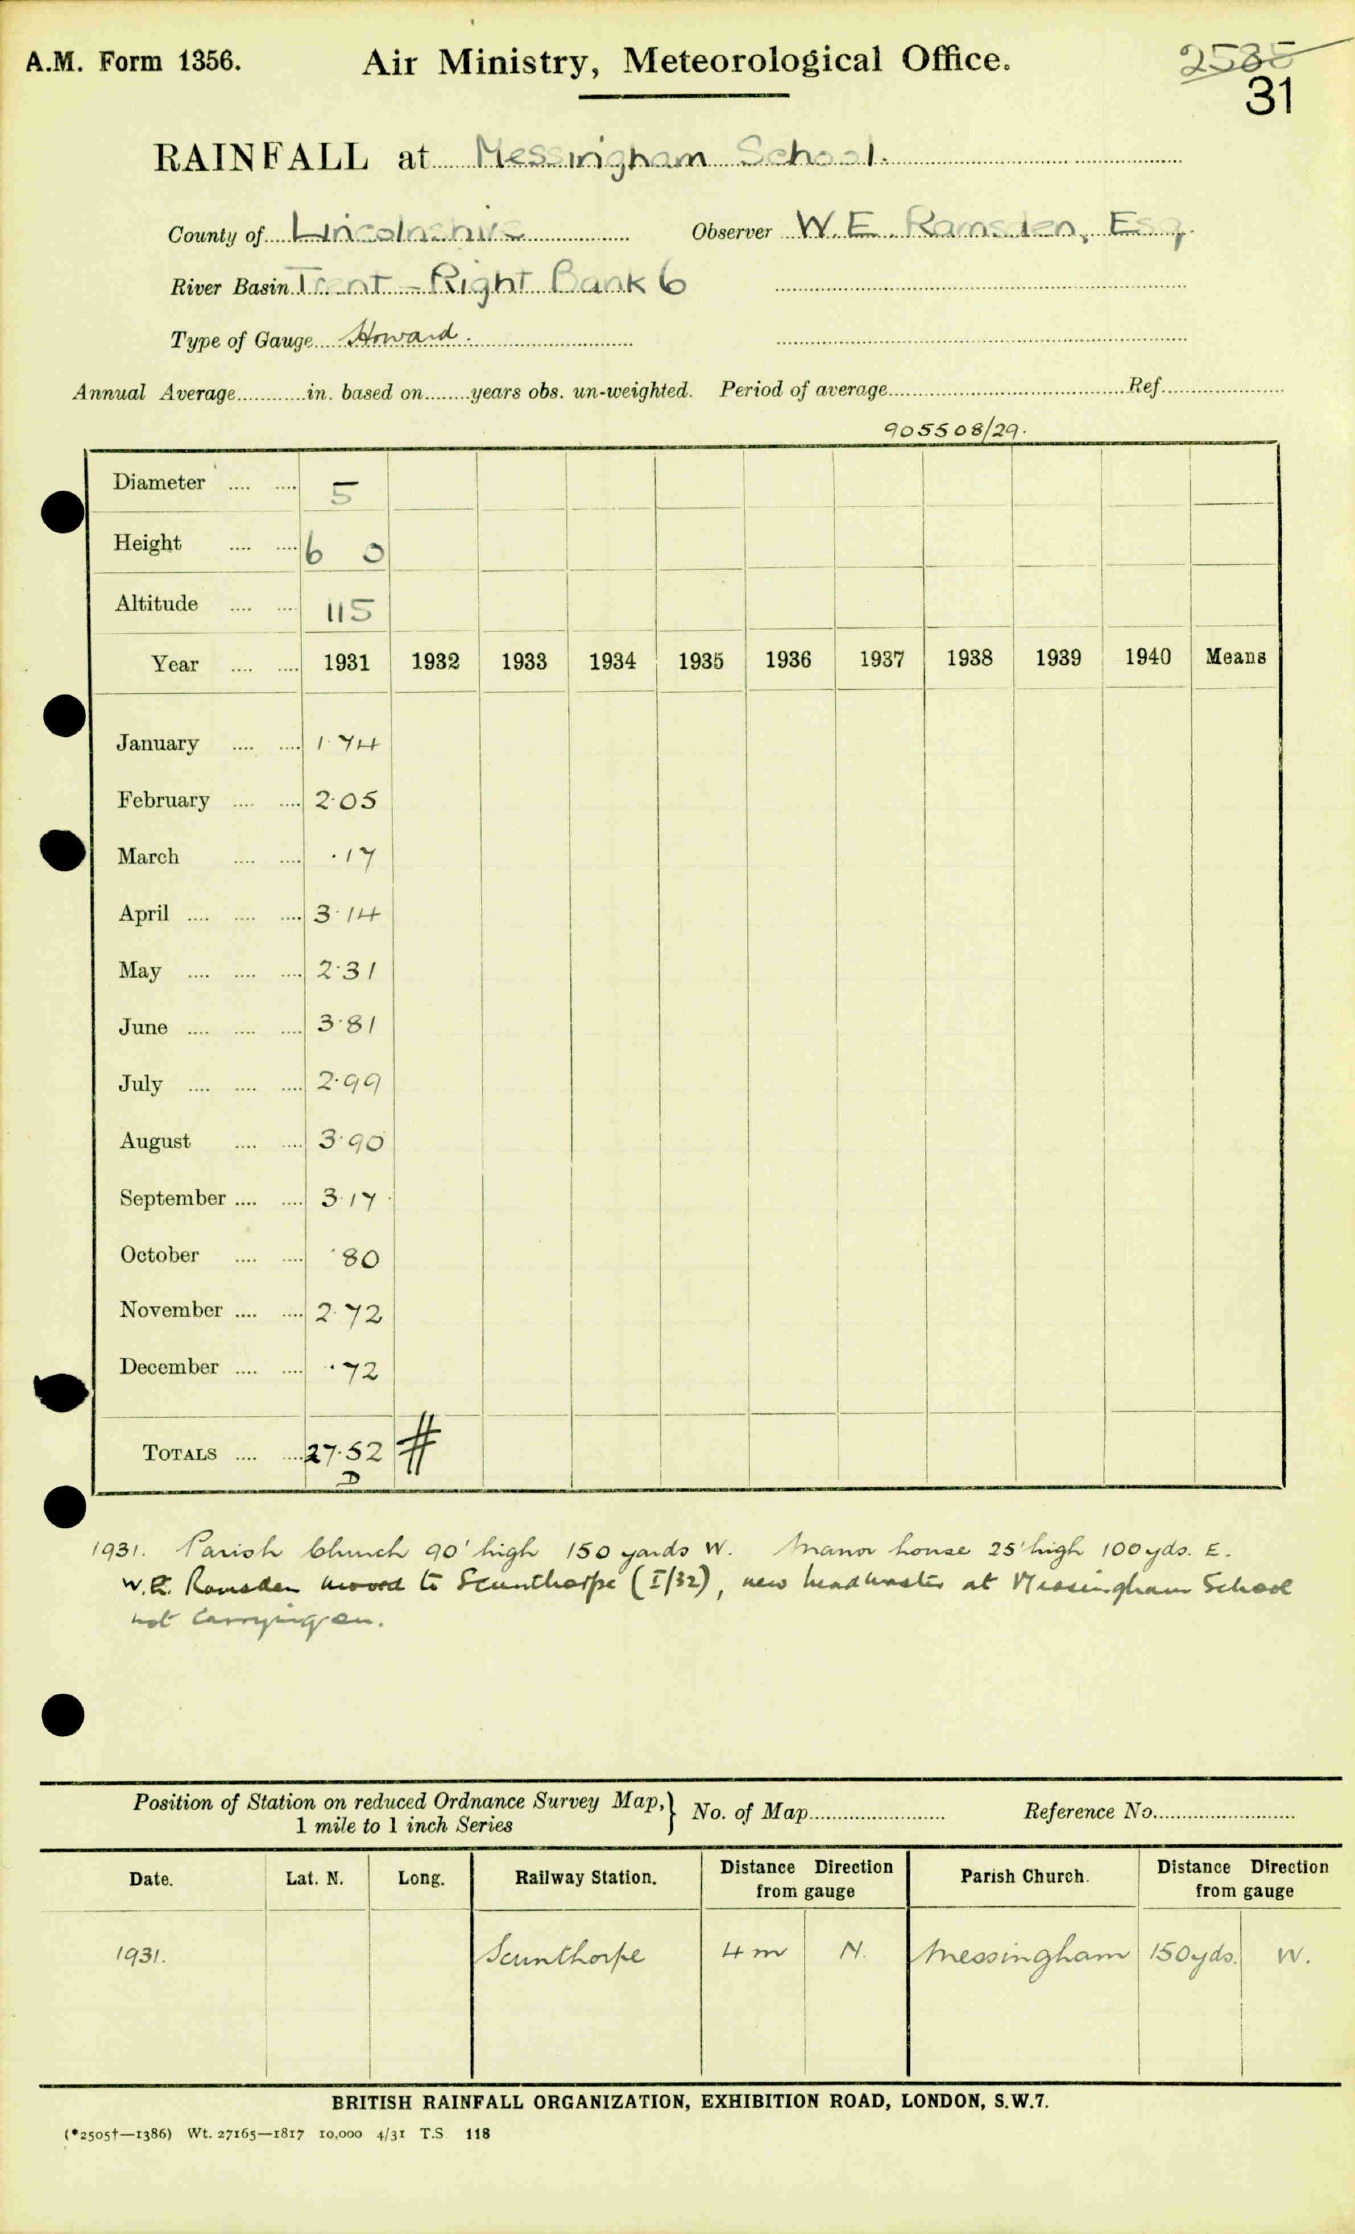 A.M. Form 1356. Air Ministry, Meteorological Office. 2535
31
RAINFALL at Messingham School.
County of Lincolnshire Observer W.E. Ramsden, Esq.
River Basin Trent – Right Bank 6
Type of Gauge Howard.
Annual Average............in. based on........years obs. un-weighted. Period of average............Ref............
905508/29.
Diameter .... .... 5
Height .... .... 6 0
Altitude .... .... 115
Year .... .... 1931 1932 1933 1934 1935 1936 1937 1938 1939 1940 Means
January .... .... 1.74
February .... .... 2.05
March .... .... .17
April .... .... .... 3.14
May .... .... .... 2.31
June .... .... .... 3.81
July .... .... .... 2.99
August .... .... 3.90
September .... .... 3.17
October .... .... .80
November .... .... 2.72
December .... .... .72
TOTALS .... .... 27.52 #
D
1931. Parish Church 90' high 150 yards W. Manor house 25' high 100 yds. E.
W.E. Ramsden moved to Scunthorpe (I/32), new headmaster at Messingham School
not carrying on.
Position of Station on reduced Ordnance Survey Map, } No. of Map............ Reference No............
1 mile to 1 inch Series
Date. Lat. N. Long. Railway Station. Distance Direction from gauge Parish Church. Distance Direction from gauge
1931. Scunthorpe 4 m N. Messingham 150 yds. W.
BRITISH RAINFALL ORGANIZATION, EXHIBITION ROAD, LONDON, S.W.7.
(*2505†—1386) Wt. 27165—1817 10,000 4/31 T.S 118